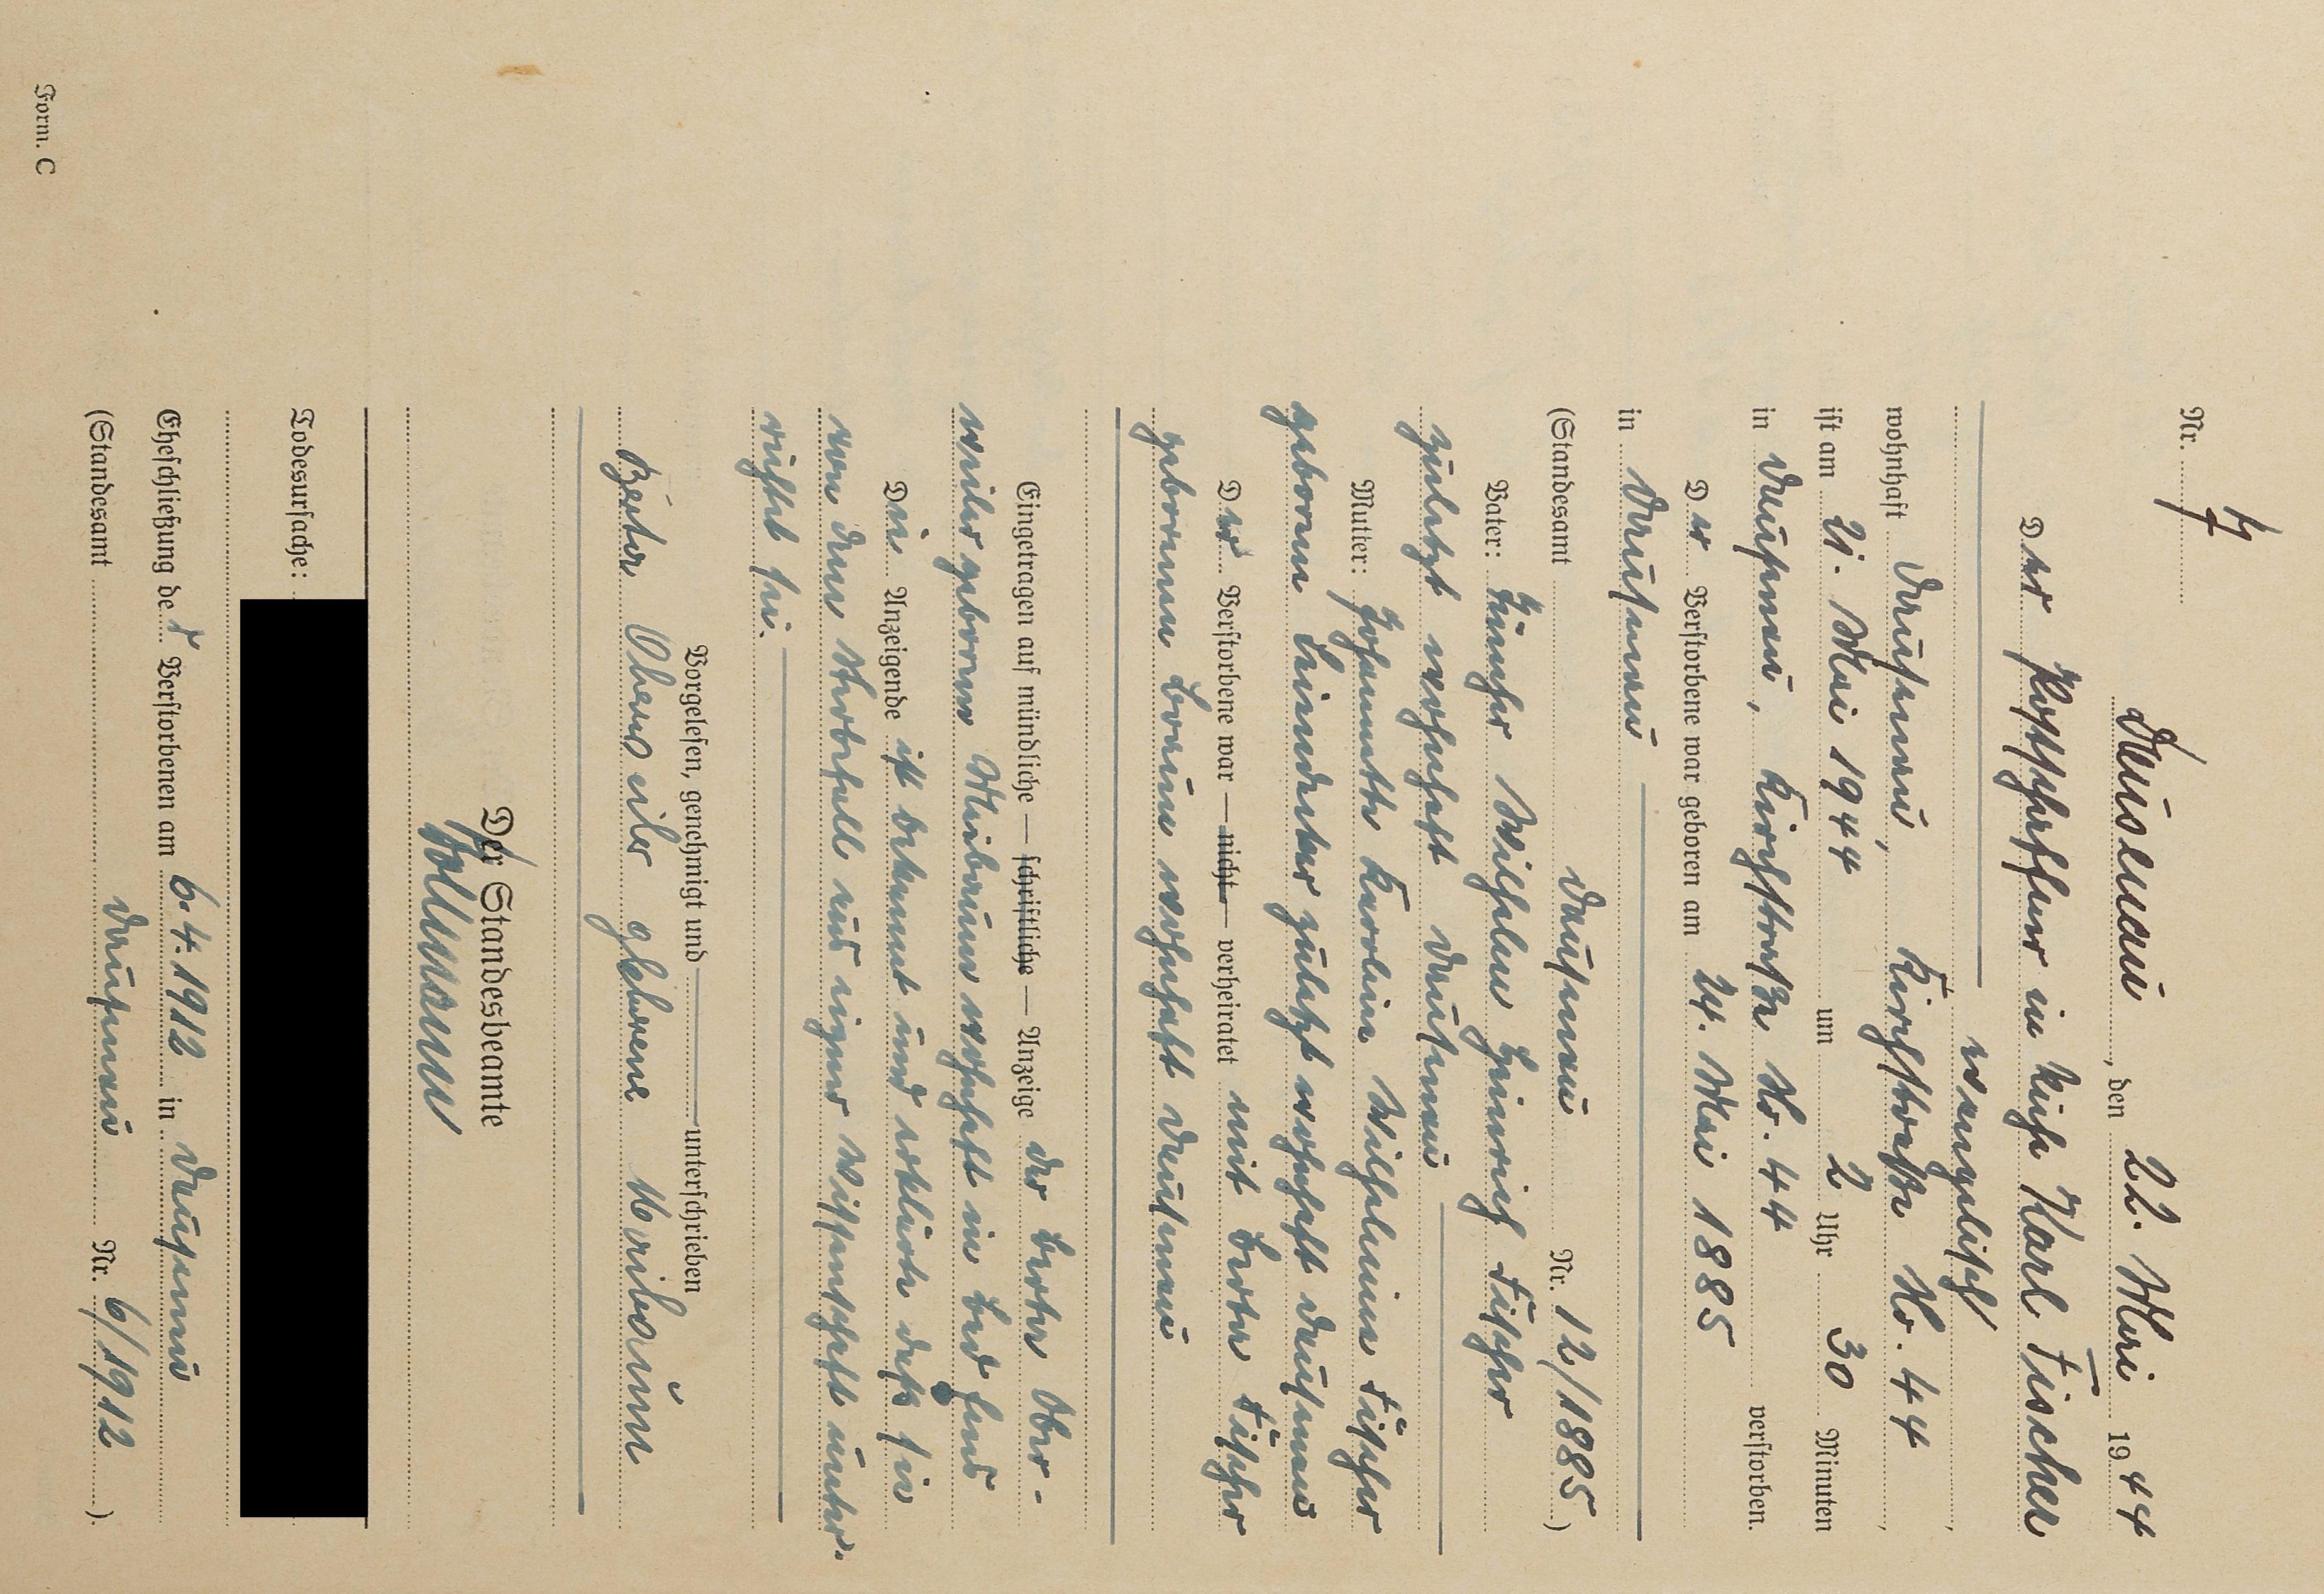 Nr. 7
Dausenau, den 22. Mai 1944
Der Postschaffner in Ruhe Karl Fischer
evangelisch
wohnhaft Dausenau, Kirchstraße No. 44
ist am 21. Mai 1944 um 2 Uhr 30 Minuten
in Dausenau, Kirchstraße No. 44 verstorben.
Der Verstorbene war geboren am 24. Mai 1885
in Dausenau
(Standesamt Dausenau Nr. 12/1885)
Vater: Wilhelm Heinrich Fischer
zuletzt wohnhaft Dausenau
Mutter: Karoline Wilhelmine Fischer
geborene zuletzt wohnhaft Dausenau
Der Verstorbene war — nicht — verheiratet mit Berta Fischer
geborenen wohnhaft Dausenau
Eingetragen auf mündliche — schriftliche — Anzeige der Berta Ober-
weiler geborene wohnhaft in Bad Ems
Die Anzeigende ist bekannt und erklärte daß sie
von dem Sterbefall aus eigner Wissenschaft unter-
richtet sei.
Vorgelesen, genehmigt und unterschrieben
Berta Oberweiler geborene
Der Standesbeamte
Todesursache:
Eheschließung des Verstorbenen am 6.4.1912 in Dausenau
(Standesamt Dausenau Nr. 6/1912).
Form. C